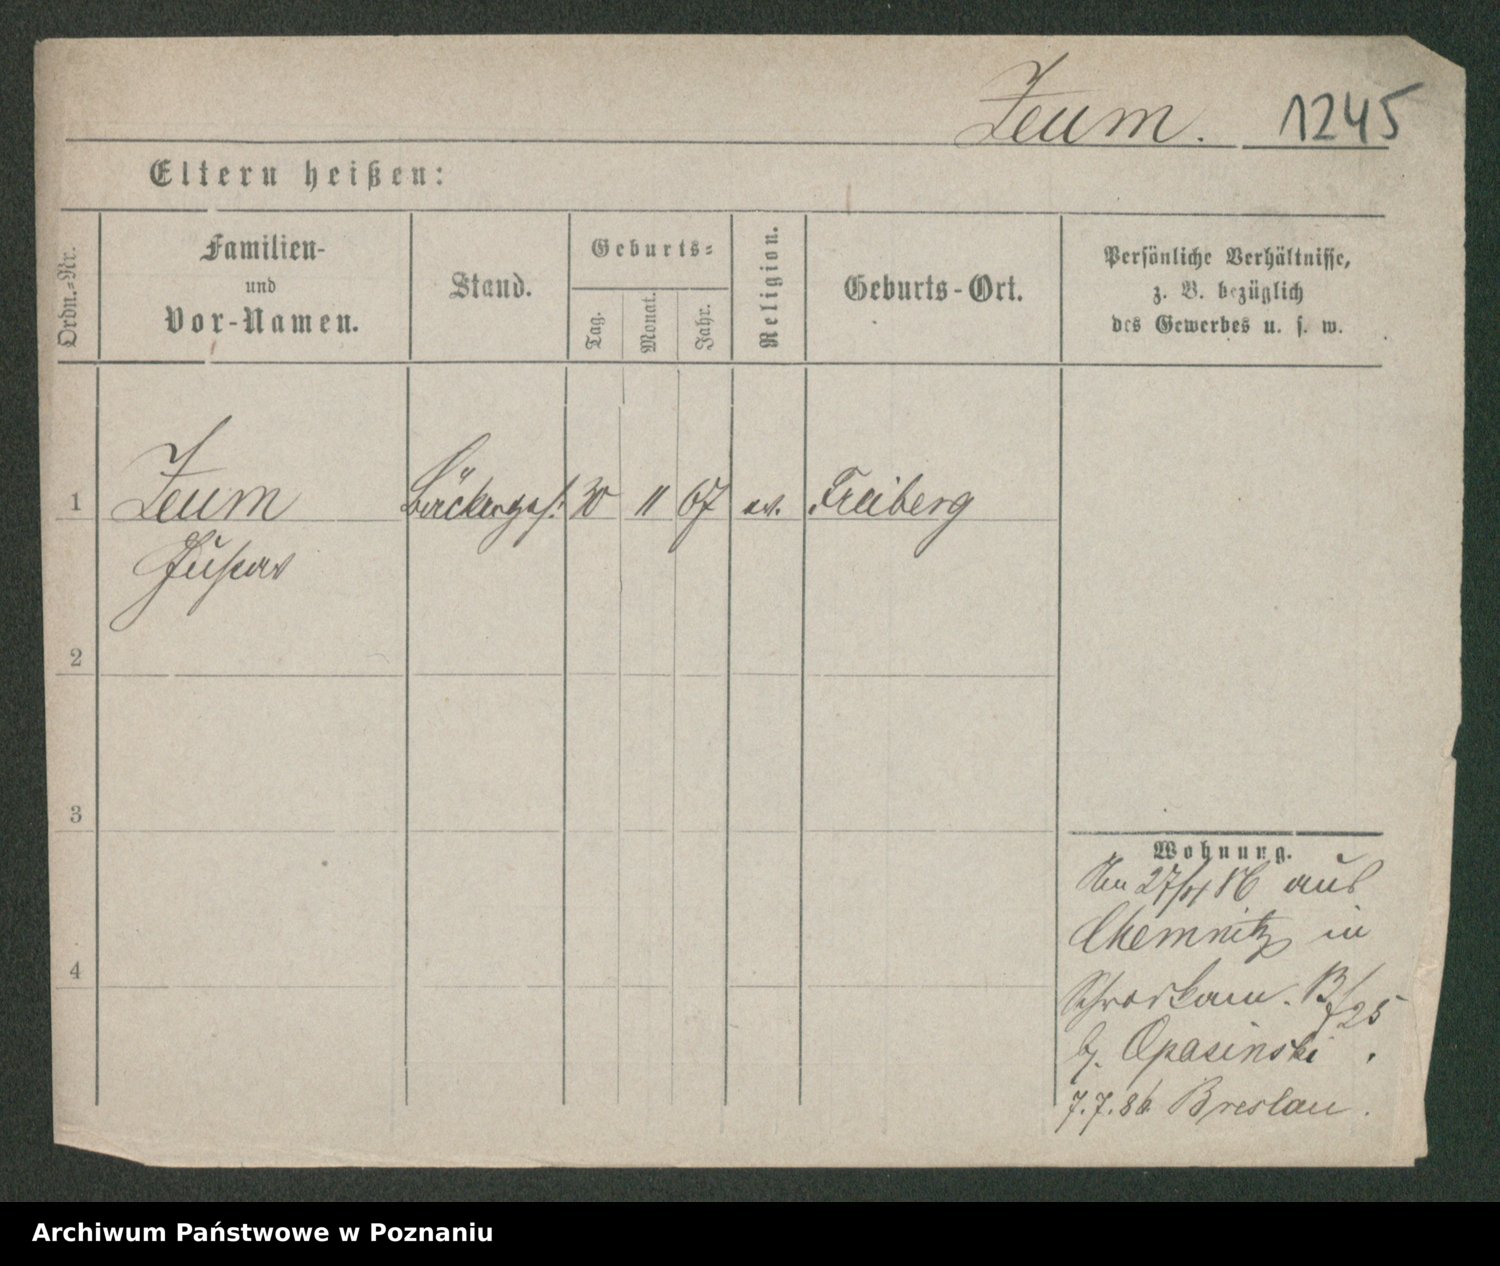 Zeum. 1245
Eltern heißen:
Ordn.=Nr.
Familien-
und
Vor-Namen.
Stand.
Geburts=
Tag.
Monat.
Jahr.
Religion.
Geburts-Ort.
Persönliche Verhältnisse,
z. B. bezüglich
des Gewerbes u. s. w.
1 Zeum Bäckerges. 30 11 67 ev. Freiberg
Gustav
2
3
4
Wohnung.
Am 27/ 86 aus
Chemnitz in
B/25
b. Opasinski.
7.7.86 Breslau.
Archiwum Państwowe w Poznaniu